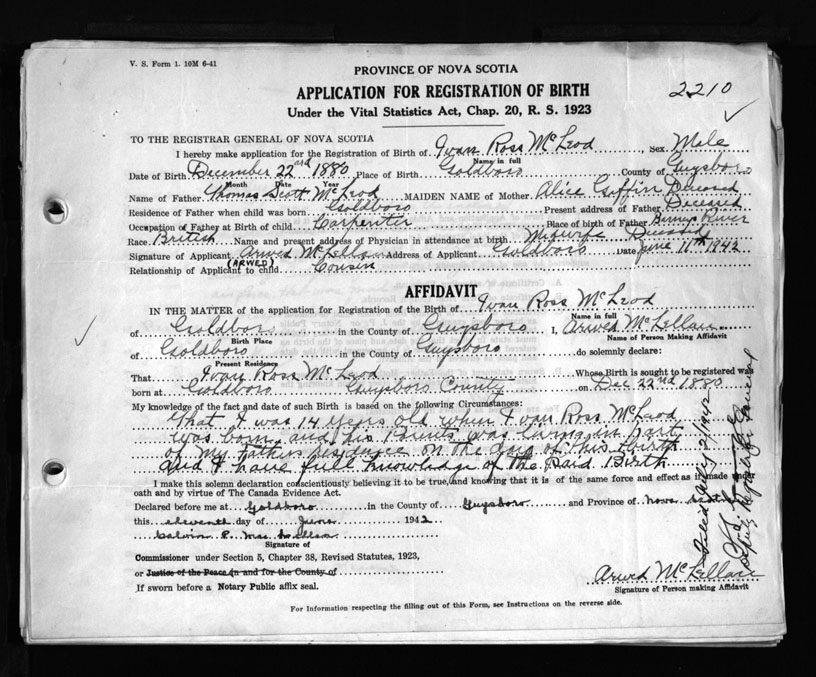 V. S. Form 1. 10M 6-41
PROVINCE OF NOVA SCOTIA
APPLICATION FOR REGISTRATION OF BIRTH
2210
Under the Vital Statistics Act, Chap. 20, R. S. 1923
TO THE REGISTRAR GENERAL OF NOVA SCOTIA
I hereby make application for the Registration of Birth of Ivan Ross McLeod, Sex Male
Name in full
Date of Birth December 22nd 1880 Place of Birth Goldboro County of Guysboro
Month Date Year
Name of Father Thomas Scott McLeod MAIDEN NAME of Mother Alice Giffin Deceased
Residence of Father when child was born Goldboro Present address of Father Deceased
Occupation of Father at Birth of child Carpenter Place of birth of Father River
Race British Name and present address of Physician in attendance at birth Midwife Deceased
Signature of Applicant Arwed McLellan Address of Applicant Goldboro Date June 11th 1942
(ARWED)
Relationship of Applicant to child Cousin
AFFIDAVIT
IN THE MATTER of the application for Registration of the Birth of Ivan Ross McLeod
Name in full
of Goldboro in the County of Guysboro I, Arwed McLellan
Birth Place Name of Person Making Affidavit
of Goldboro in the County of Guysboro do solemnly declare:
Present Residence
That Ivan Ross McLeod Whose Birth is sought to be registered was
born at Goldboro Guysboro County on Dec 22nd 1880
My knowledge of the fact and date of such Birth is based on the following Circumstances:
That I was 14 years old when Ivan Ross McLeod
was born and his Parents was living in part
of my fathers residence on the day of this birth
and I have full knowledge of the said Birth
I make this solemn declaration conscientiously believing it to be true, and knowing that it is of the same force and effect as if made under
oath and by virtue of The Canada Evidence Act.
Declared before me at Goldboro in the County of Guysboro and Province of Nova Scotia
this eleventh day of June 1942
Calvin P. McLellan
Signature of
Commissioner under Section 5, Chapter 38, Revised Statutes, 1923,
or Justice of the Peace in and for the County of
If sworn before a Notary Public affix seal.
Arwed McLellan
Signature of Person making Affidavit
For Information respecting the filling out of this Form, see Instructions on the reverse side.